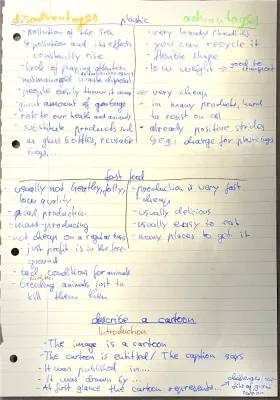 disadvantages plastic advantages
- pollution of the sea
- pollution and its effects
constantly rise
- lack of playing attention
- people easily throw it away
- giant amount of garbage
- risk to our health and animals
- substitute products such
as glass bottles, reusable
bags...
- very handy
- you can recycle it
- flexible shape
- low weight → good to transport
- very cheap
- in many products, hard
to resist on all
- already positive strides
e.g.: charge for plastic bags
fast food
- usually not healthy, fatty,
low quality
- production
- mass-producing
- not cheap on a regular basis
- just profit is in the fore-
ground
- conditions for animals
- breeding animals just to
kill them then
- production is very fast
cheap
- usually delicious
- usually easy to eat
- many places to get it
describe a cartoon
Introduction:
- The image is a cartoon
- The cartoon is entitled / The caption says
- It was published in...
- It was drawn by ...
- At first glance the cartoon represents...